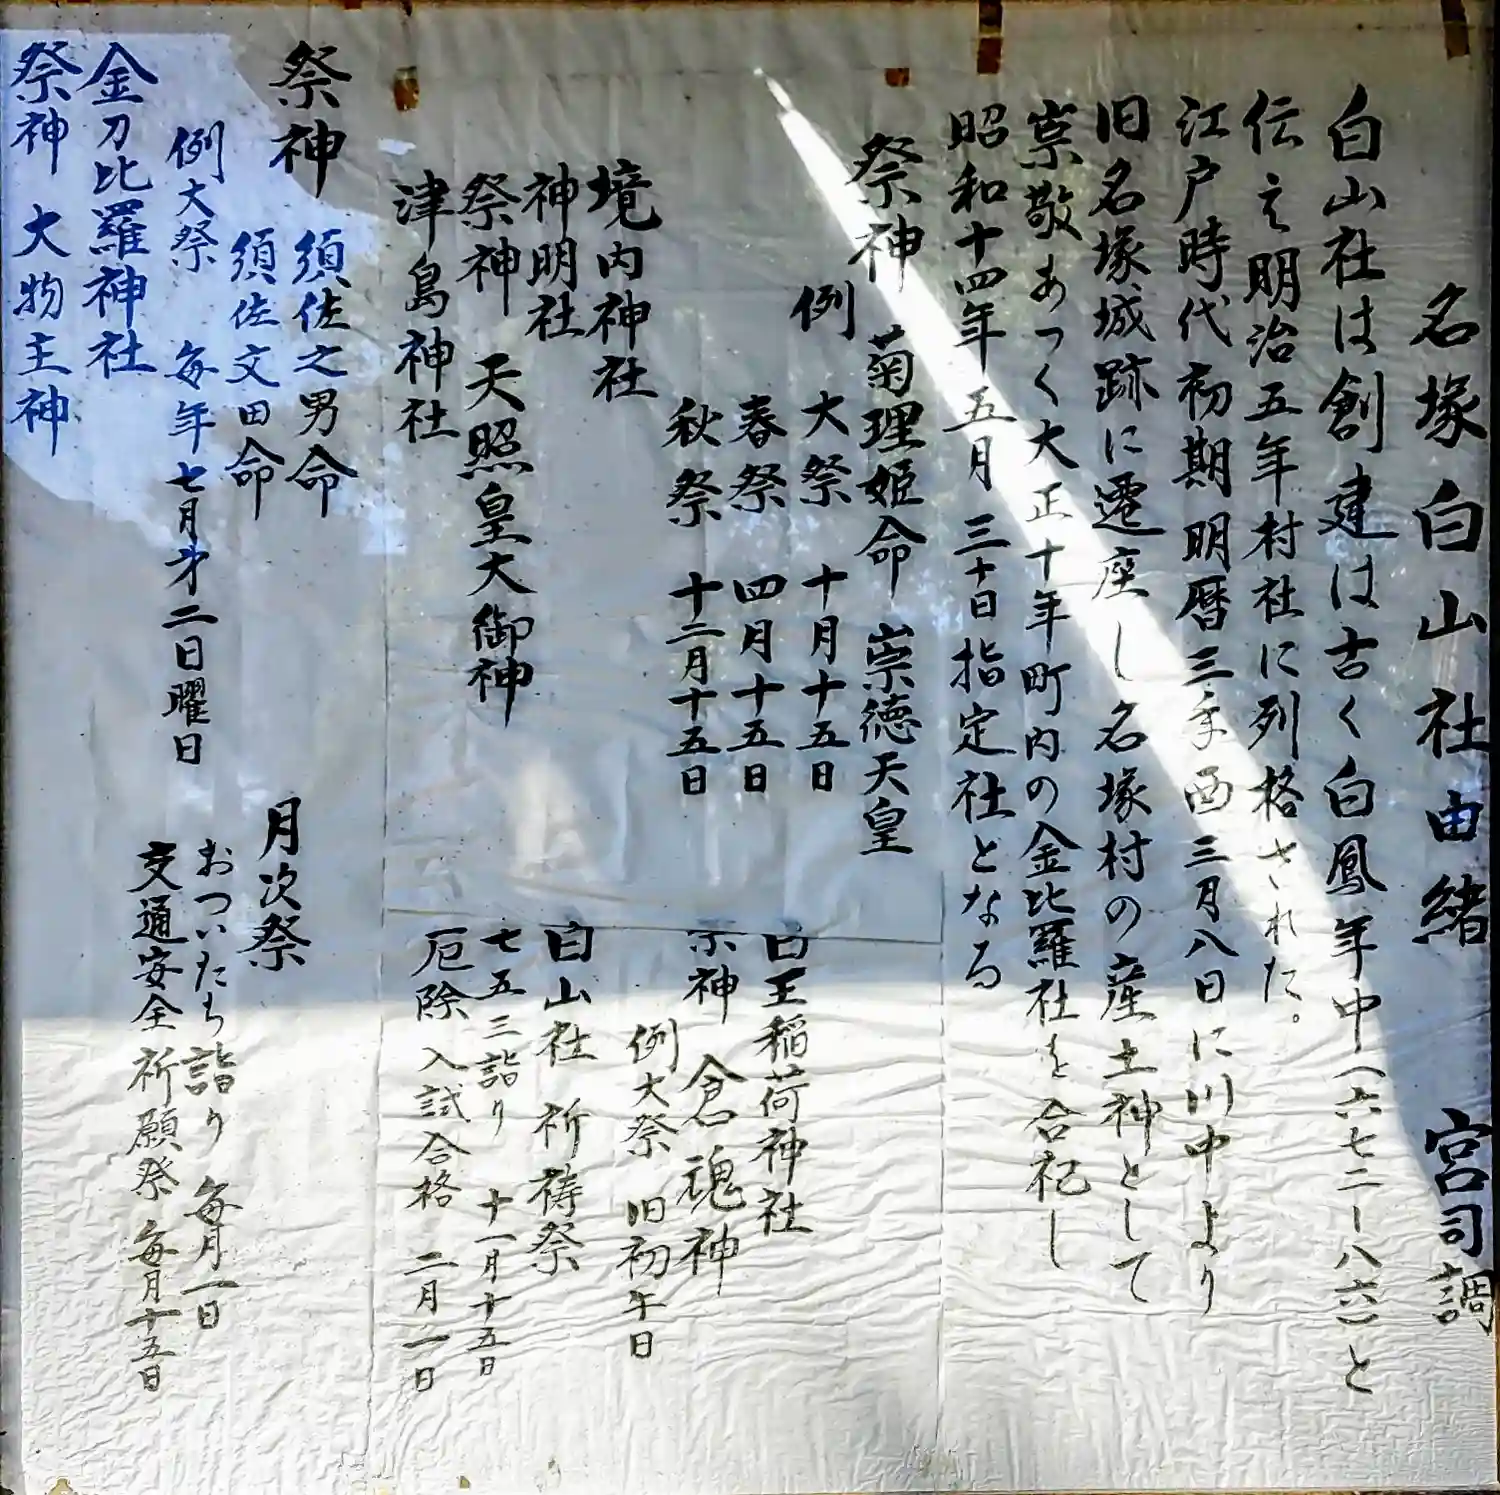 名塚白山社由緒 宮司調
白山社は創建は古く白鳳年中(六七二ー八六)と
伝え明治五年村社に列格された。
江戸時代初期明暦三年酉三月八日に川中より
旧名塚城跡に遷座し名塚村の産土神として
崇敬あつく大正十年町内の金比羅社を合祀し
昭和十四年五月三十日指定社となる
祭神 菊理姫命 崇徳天皇
例 大祭 十月十五日
春祭 四月十五日
秋祭 十二月十五日
境内神社
神明社
祭神 天照皇大御神
津島神社
白王稲荷神社
祭神 倉魂神
例大祭 旧初午日
白山社 祈祷祭
七五三詣り 十一月十五日
厄除 入試合格 二月一日
祭神 須佐之男命
須佐文田命
例大祭 毎年七月才二日曜日
金刀比羅神社
祭神 大物主神
月次祭
おついたち詣り 毎月一日
交通安全祈願祭 毎月十五日